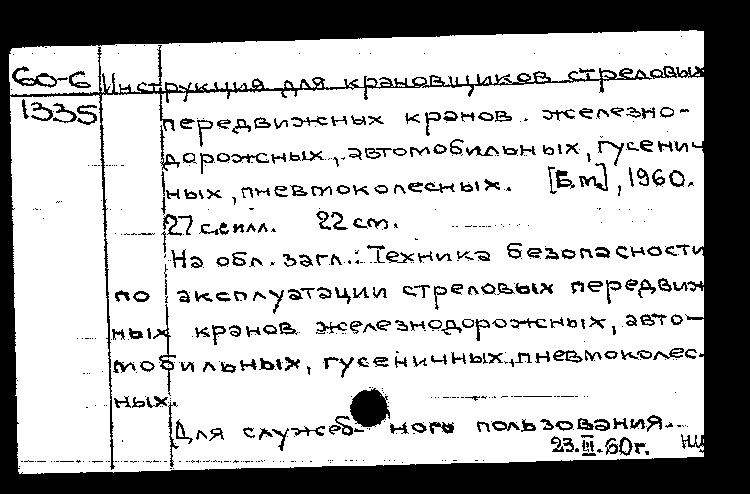 60-6 Инструкция для крановщиков стреловых
1335 передвижных кранов. железно-
дорожных, автомобильных, гусенич
ных, пневмоколесных. [Б.м.], 1960.
27 с. с илл. 22 см.
На обл. загл.: Техника безопасности
по эксплуатации стреловых передвиж
ных кранов железнодорожных, авто-
мобильных, гусеничных, пневмоколес-
ных.
Для служеб- ного пользования.
23.III.60г.